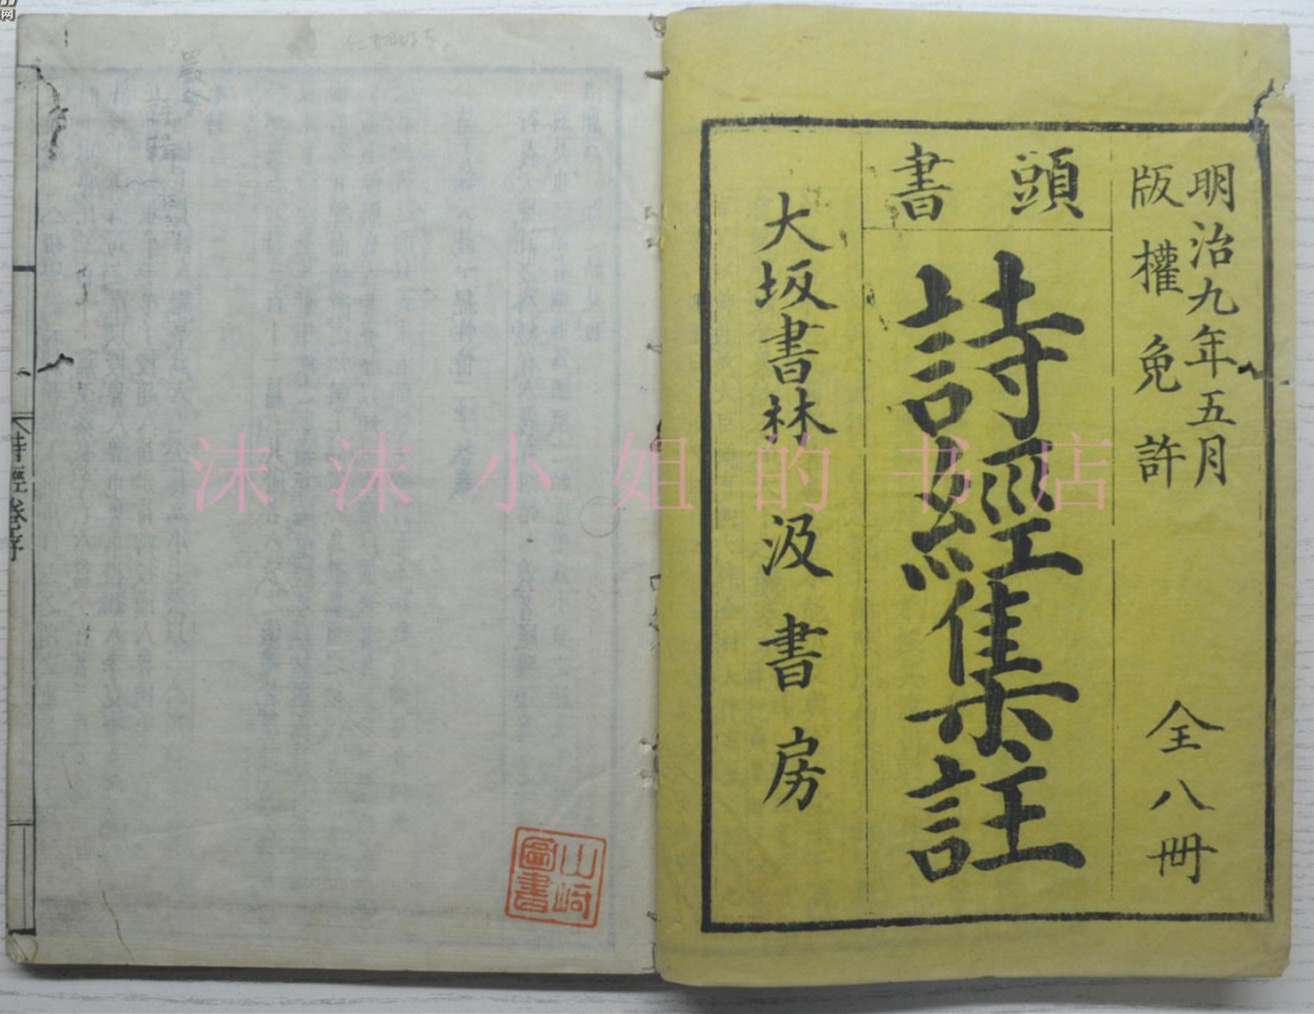 明治九年五月
版權免許
全八冊
頭書
詩經集註
大坂書林
汲書房
山崎
圖書
詩經卷序
沫沫小姐的书店
网